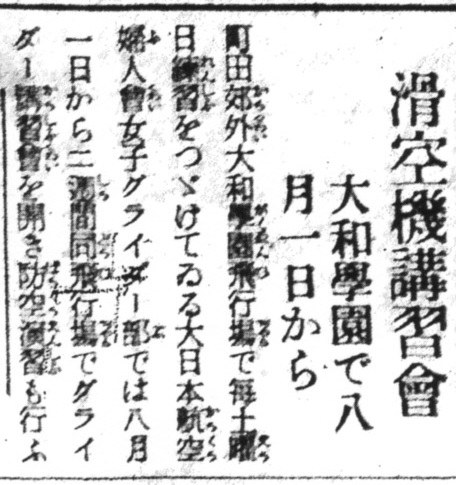 滑空機講習會
大和學園で八
月一日から
町田郊外大和學園飛行場で毎土曜
日練習をつゞけてゐる大日本航空
婦人會女子グライダー部では八月
一日から二週間同飛行場でグライ
ダー講習會を開き防空演習も行ふ